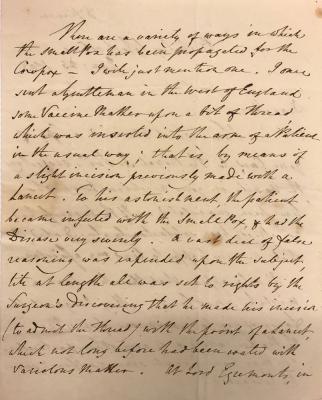 There are a variety of ways in which
the Small Pox has been propagated for the
Cowpox — I will just mention one. I once
sent a Gentleman in the West of England
some Vaccine Matter upon a bit of Thread
which was inserted into the arm of a Patient
in the usual way; that is, by means of
a slight incision previously made with a
Lancet. To his astonishment, the patient
became infected with the Small Pox, & had the
Disease very severely. A vast deal of false
reasoning was expended upon the subject,
at length all was set to rights by the
Surgeon's discovering that he made his incision
(to admit the Thread) with the point of a Lancet,
which not long before had been coated with
variolous Matter. At Lord Egremont's, in